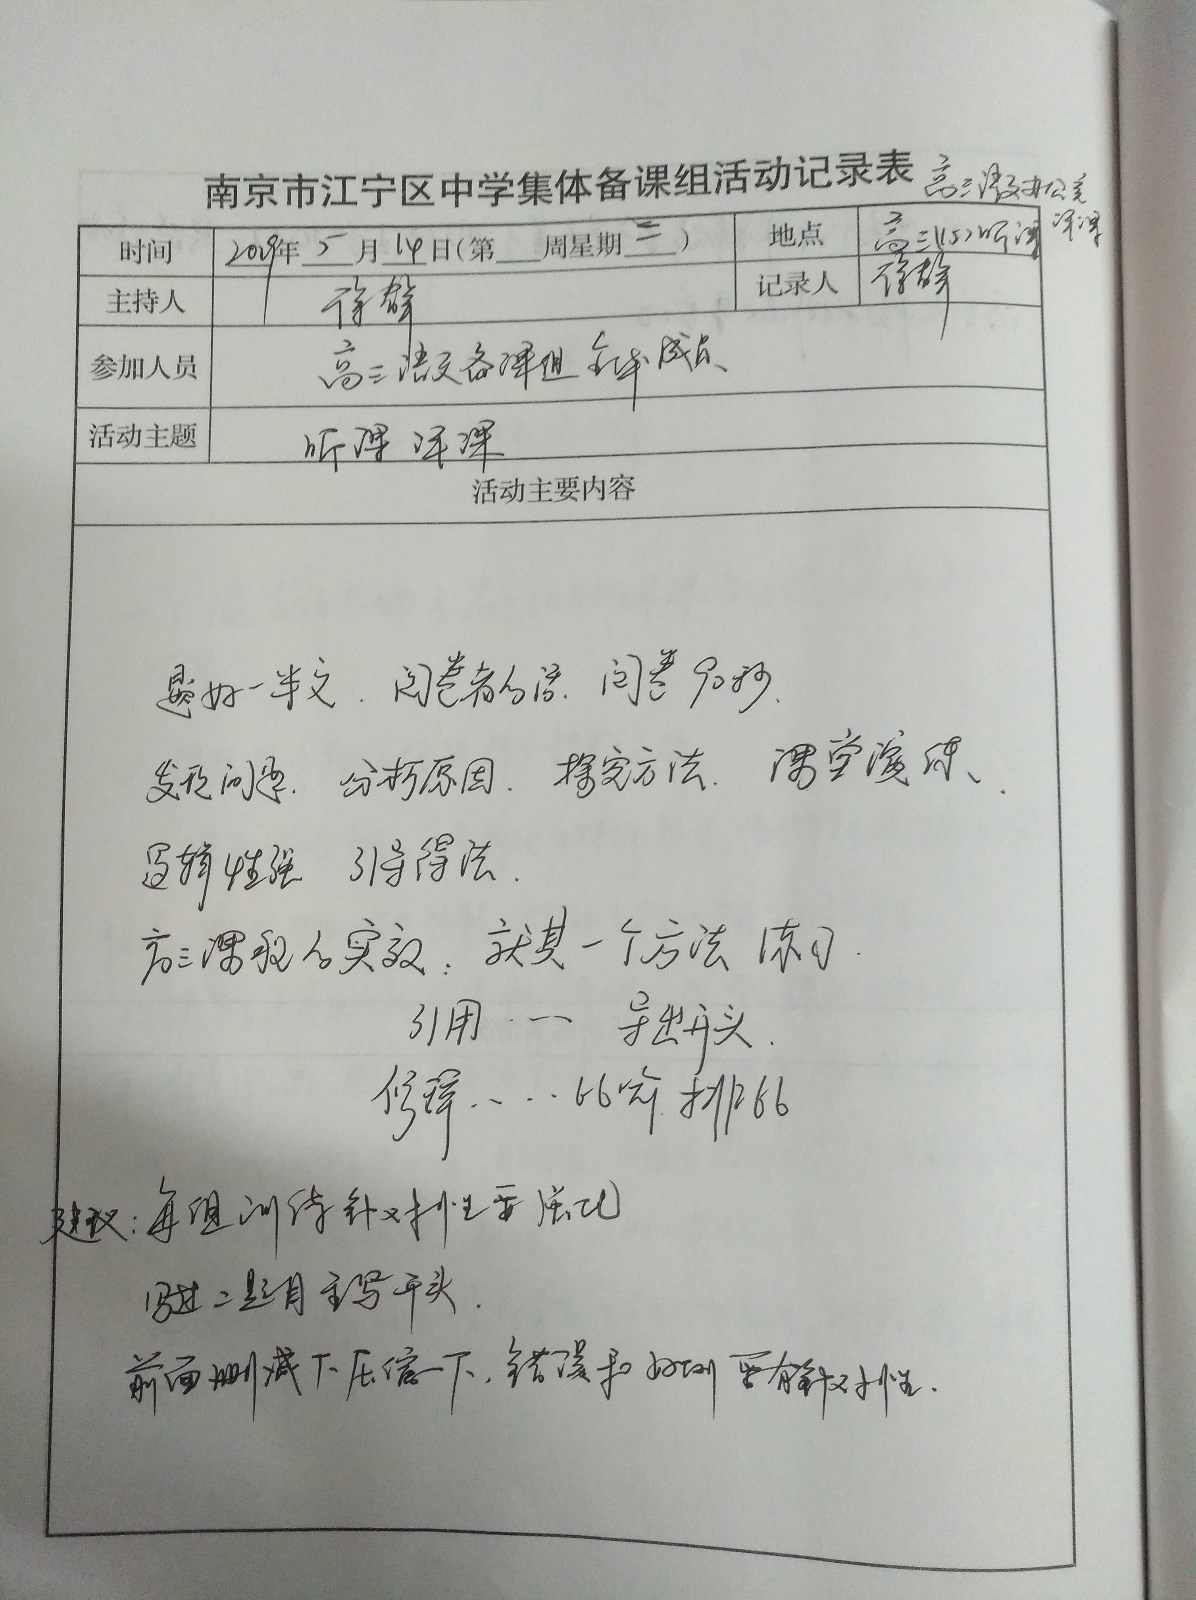 南京市江宁区中学集体备课组活动记录表
高三语文办公室
评课
时间 2019年 5 月 14 日(第 周星期 三 ) 地点 高三(15)听课
主持人 徐 记录人 徐
参加人员 高三语文备课组全体成员、
活动主题 听课 评课
活动主要内容
题好一半文. 阅卷者的话. 阅卷90秒.
发现问题. 分析原因. 探究方法. 课堂演练、
逻辑性强 引导得法.
高三课程的实效: 就某一个方法 练习.
引用 ··一 导出开头.
修辞..... 比喻 排比
建议: 每组训练针对性要强化
二题目 写开头.
前面删减下压缩一下. 错误和好例要有针对性.